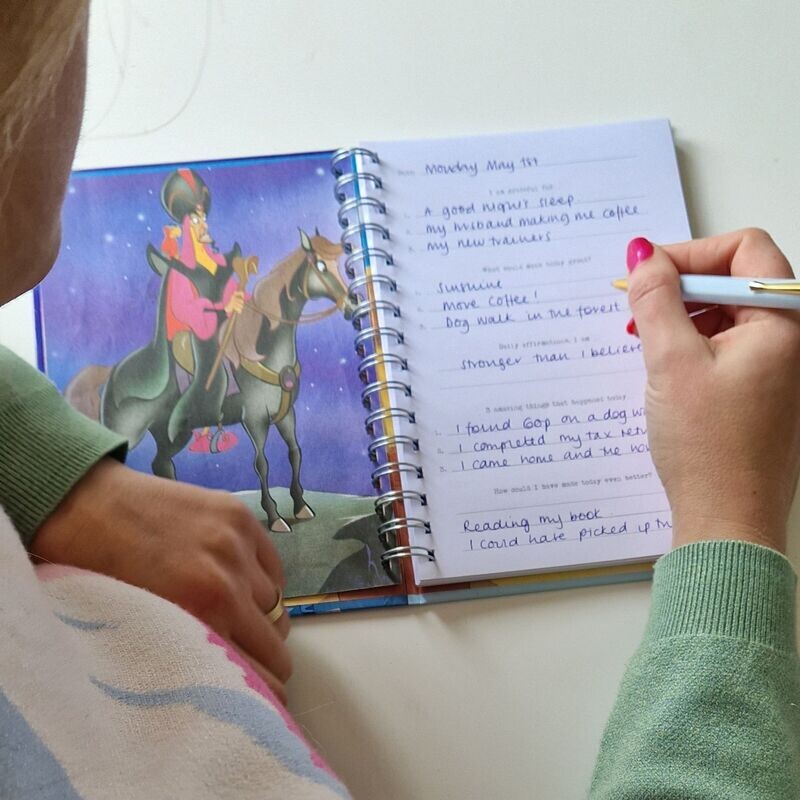 Date Monday May 1st
I am grateful for
1. A good night's sleep
2. my husband making me coffee
3. my new trainers
What would make today great?
1. Sunshine
2. More coffee!
3. Dog walk in the forest
Daily affirmation. I am
stronger than I believe
3 amazing things that happened today
1. I found 60p on a dog
2. I completed my tax
3. I came home and the
How could I have made today even better?
Reading my book
I could have picked up